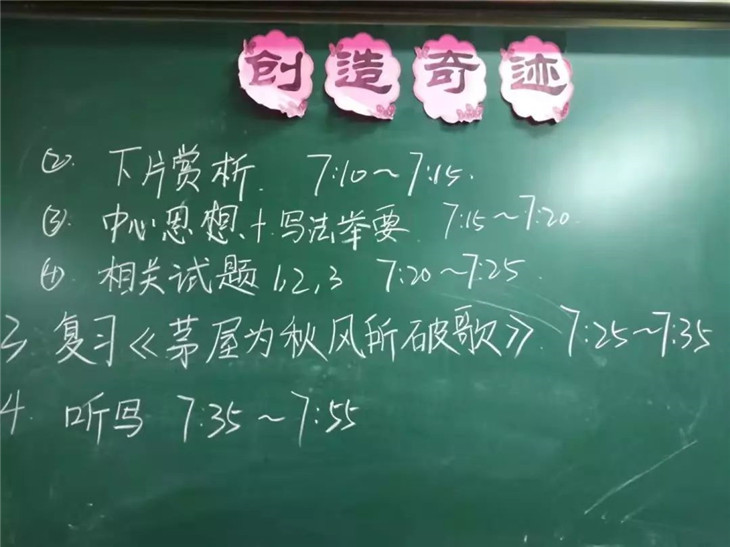 创造奇迹
②. 下片赏析. 7:10~7:15.
③. 中心思想、十写法举要. 7:15~7:20.
④. 相关试题1.2,3 7:20~7:25.
3 复习《茅屋为秋风所破歌》. 7:25~7:35
4. 听写 7:35~7:55